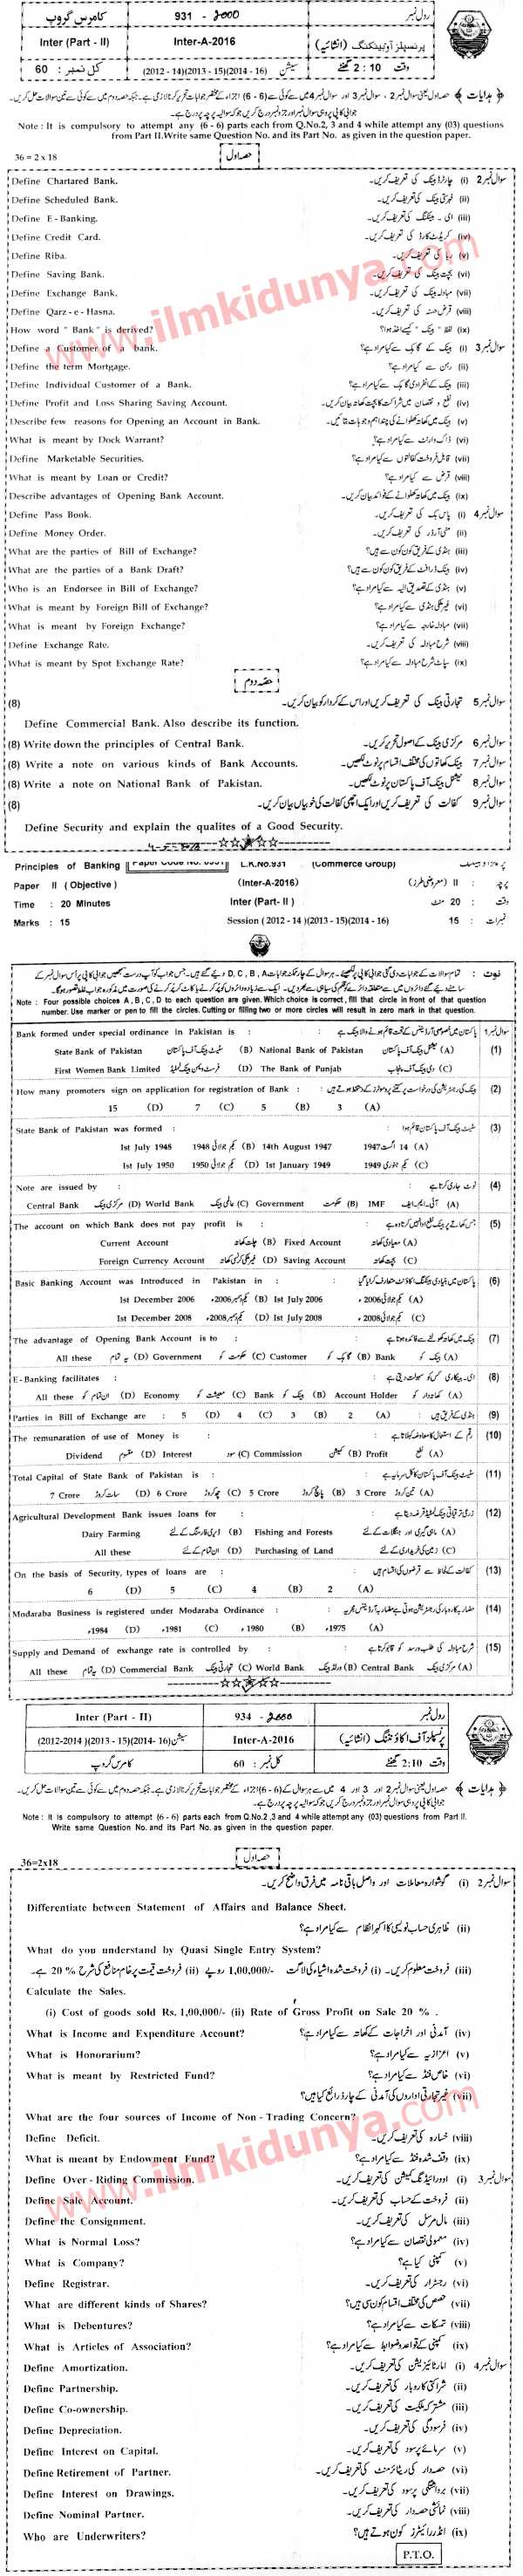 کامرس گروپ 931 - 2000 رول نمبر
Inter (Part - II) Inter-A-2016 پرنسپلز آف بینکنگ (انشائیہ)
کل نمبر : 60 (2012 - 14)(2013 - 15)(2014 - 16) سیشن وقت 2 : 10 گھنٹے
Note : It is compulsory to attempt any (6 - 6) parts each from Q.No.2, 3 and 4 while attempt any (03) questions
from Part II.Write same Question No. and its Part No. as given in the question paper.
36 = 2 x 18 حصہ اول
Define Chartared Bank. چارٹرڈ بینک کی تعریف کریں۔ (i) سوال نمبر 2
Define Scheduled Bank. فہرستی بینک کی تعریف کریں۔ (ii)
Define E - Banking. ای ۔ بینکنگ کی تعریف کریں۔ (iii)
Define Credit Card. کریڈٹ کارڈ کی تعریف کریں۔ (iv)
Define Riba. ربا کی تعریف کریں۔ (v)
Define Saving Bank. بچت بینک کی تعریف کریں۔ (vi)
Define Exchange Bank. مبادلہ بینک کی تعریف کریں۔ (vii)
Define Qarz - e - Hasna. قرض حسنہ کی تعریف کریں۔ (viii)
How word " Bank " is derived? لفظ " بینک " کیسے اخذ ہوا؟ (ix)
Define a Customer of a bank. بینک کے گاہک سے کیا مراد ہے؟ (i) سوال نمبر 3
Define the term Mortgage. رہن سے کیا مراد ہے؟ (ii)
Define Individual Customer of a Bank. بینک کے انفرادی گاہک سے کیا مراد ہے؟ (iii)
Define Profit and Loss Sharing Saving Account. نفع و نقصان میں شراکت کا بچت کھاتہ بیان کریں۔ (iv)
Describe few reasons for Opening an Account in Bank. بینک میں کھاتہ کھلوانے کی چند اہم وجوہات بتائیں۔ (v)
What is meant by Dock Warrant? ڈاک وارنٹ سے کیا مراد ہے؟ (vi)
Define Marketable Securities. قابل فروخت کفالتوں سے کیا مراد ہے؟ (vii)
What is meant by Loan or Credit? قرض سے کیا مراد ہے؟ (viii)
Describe advantages of Opening Bank Account. بینک میں کھاتہ کھلوانے کے فوائد بیان کریں۔ (ix)
Define Pass Book. پاس بک کی تعریف کریں۔ (i) سوال نمبر 4
Define Money Order. منی آرڈر کی تعریف کریں۔ (ii)
What are the parties of Bill of Exchange? ہنڈی کے فریق کون کون سے ہیں؟ (iii)
What are the parties of a Bank Draft? بینک ڈرافٹ کے فریق کون کون سے ہیں؟ (iv)
Who is an Endorsee in Bill of Exchange? ہنڈی کے تصدیق الیہ سے کیا مراد ہے؟ (v)
What is meant by Foreign Bill of Exchange? غیر ملکی ہنڈی سے کیا مراد ہے؟ (vi)
What is meant by Foreign Exchange? مبادلہ خارجہ سے کیا مراد ہے؟ (vii)
Define Exchange Rate. شرح مبادلہ کی تعریف کریں۔ (viii)
What is meant by Spot Exchange Rate? سپاٹ شرح مبادلہ سے کیا مراد ہے؟ (ix)
حصہ دوم
(8) تجارتی بینک کی تعریف کریں اور اس کے کردار کو بیان کریں۔ سوال نمبر 5
Define Commercial Bank. Also describe its function.
(8) Write down the principles of Central Bank. مرکزی بینک کے اصول تحریر کریں۔ سوال نمبر 6
(8) Write a note on various kinds of Bank Accounts. بینک کھاتوں کی مختلف اقسام پر نوٹ لکھیں۔ سوال نمبر 7
(8) Write a note on National Bank of Pakistan. نیشنل بینک آف پاکستان پر نوٹ لکھیں۔ سوال نمبر 8
(8) کفالت کی تعریف کریں اور ایک اچھی کفالت کی خوبیاں بیان کریں۔ سوال نمبر 9
Define Security and explain the qualites of a Good Security.
Principles of Banking Paper Code No. L.K.No.931 (Commerce Group)
Paper II (Objective) (Inter-A-2016) پرچہ : II (معروضی طرز)
Time : 20 Minutes Inter (Part- II) وقت : 20 منٹ
Marks : 15 Session (2012 - 14)(2013 - 15)(2014 - 16) نمبرات : 15
Note : Four possible choices A, B, C, D to each question are given. Which choice is correct, fill that circle in front of that question
number. Use marker or pen to fill the circles. Cutting or filling two or more circles will result in zero mark in that question.
Bank formed under special ordinance in Pakistan is : سوال نمبر 1
State Bank of Pakistan سٹیٹ بینک آف پاکستان (B) National Bank of Pakistan نیشنل بینک آف پاکستان (A) (1)
First Women Bank Limited فرسٹ ویمن بینک لمیٹڈ (D) The Bank of Punjab دی بینک آف پنجاب (C)
How many promoters sign on application for registration of Bank : (2)
15 (D) 7 (C) 5 (B) 3 (A)
State Bank of Pakistan was formed : سٹیٹ بینک آف پاکستان قائم ہوا (3)
1st July 1948 یکم جولائی 1948 (B) 14th August 1947 14 اگست 1947 (A)
1st July 1950 یکم جولائی 1950 (D) 1st January 1949 یکم جنوری 1949 (C)
Note are issued by : نوٹ جاری کرتا ہے (4)
Central Bank مرکزی بینک (D) World Bank عالمی بینک (C) Government حکومت (B) IMF آئی۔ایم۔ایف (A)
The account on which Bank does not pay profit is : (5)
Current Account چلت کھاتہ (B) Fixed Account معیادی کھاتہ (A)
Foreign Currency Account غیر ملکی کرنسی کھاتہ (D) Saving Account بچت کھاتہ (C)
Basic Banking Account was Introduced in Pakistan in : (6)
1st December 2006 یکم دسمبر 2006ء (B) 1st July 2006 یکم جولائی 2006ء (A)
1st December 2008 یکم دسمبر 2008ء (D) 1st July 2008 یکم جولائی 2008ء (C)
The advantage of Opening Bank Account is to : بینک میں کھاتہ کھولنے سے فائدہ ہوتا ہے (7)
All these یہ تمام (D) Government حکومت کو (C) Customer گاہک کو (B) Bank بینک کو (A)
E - Banking facilitates : ای۔بینکاری کس کو سہولت دیتی ہے (8)
All these ان تمام کو (D) Economy معیشت کو (C) Bank بینک کو (B) Account Holder کھاتہ دار کو (A)
Parties in Bill of Exchange are : 5 (D) 4 (C) 3 (B) 2 (A) ہنڈی کے فریق ہیں : (9)
The remunaration of use of Money is : رقم کے استعمال کا معاوضہ کہلاتا ہے (10)
Dividend مقسوم (D) Interest سود (C) Commission کمیشن (B) Profit نفع (A)
Total Capital of State Bank of Pakistan is : سٹیٹ بینک آف پاکستان کا کل سرمایہ ہے (11)
7 Crore سات کروڑ (D) 6 Crore چھ کروڑ (C) 5 Crore پانچ کروڑ (B) 3 Crore تین کروڑ (A)
Agricultural Development Bank issues loan for : (12)
Dairy Farming ڈیری فارمنگ کے لئے (B) Fishing and Forests ماہی گیری اور جنگلات کے لئے (A)
All these ان تمام کے لئے (D) Purchasing of Land زمین کی خریداری کے لئے (C)
On the basis of Security, types of loans are : کفالت کے لحاظ سے قرضوں کی اقسام ہیں (13)
6 (D) 5 (C) 4 (B) 2 (A)
Modaraba Business is registered under Modaraba Ordinance : (14)
1984ء (D) 1981ء (C) 1980ء (B) 1975ء (A)
Supply and Demand of exchange rate is controlled by : شرح مبادلہ کی طلب و رسد کو قابو کرتا ہے (15)
All these یہ تمام (D) Commercial Bank تجارتی بینک (C) World Bank ورلڈ بینک (B) Central Bank مرکزی بینک (A)
Inter (Part - II) 934 - 2000 رول نمبر
(2012-2014 )(2013 - 15)(2014- 16) سیشن Inter-A-2016 پرنسپلز آف اکاؤنٹنگ (انشائیہ)
کامرس گروپ کل نمبر : 60 وقت 2:10 گھنٹے
Note : It is compulsory to attempt (6 - 6) parts each from Q.No.2 ,3 and 4 while attempt any (03) questions from Part II.
Write same Question No. and its Part No. as given in the question paper.
36=2x18 حصہ اول
گوشوارہ معاملات اور واصل باقی نامہ میں فرق واضح کریں۔ (i) سوال نمبر 2
Differentiate between Statement of Affairs and Balance Sheet.
ظاہری حساب نویسی کا اکہرا نظام سے کیا مراد ہے؟ (ii)
What do you understand by Quasi Single Entry System?
فروخت معلوم کریں۔ (i) فروخت شدہ اشیاء کی لاگت 1,00,000/- روپے (ii) فروخت قیمت پر خام منافع کی شرح 20 % ہے۔ (iii)
Calculate the Sales.
(i) Cost of goods sold Rs. 1,00,000/- (ii) Rate of Gross Profit on Sale 20 % .
What is Income and Expenditure Account? آمدنی اور اخراجات کے کھاتہ سے کیا مراد ہے؟ (iv)
What is Honorarium? اعزازیہ سے کیا مراد ہے؟ (v)
What is meant by Restricted Fund? خاص فنڈ سے کیا مراد ہے؟ (vi)
غیر تجارتی اداروں کی آمدنی کے چار ذرائع کیا ہیں؟ (vii)
What are the four sources of Income of Non - Trading Concern?
Define Deficit. خسارہ کی تعریف کریں۔ (viii)
What is meant by Endowment Fund? وقف شدہ فنڈ سے کیا مراد ہے؟ (ix)
Define Over - Riding Commission. اوور رائیڈنگ کمیشن کی تعریف کریں۔ (i) سوال نمبر 3
Define Sale Account. فروخت کے حساب کی تعریف کریں۔ (ii)
Define the Consignment. مال مرسل کی تعریف کریں۔ (iii)
What is Normal Loss? معمولی نقصان سے کیا مراد ہے؟ (iv)
What is Company? کمپنی کیا ہے؟ (v)
Define Registrar. رجسٹرار کی تعریف کریں۔ (vi)
What are different kinds of Shares? حصص کی مختلف اقسام کون سی ہیں؟ (vii)
What is Debentures? تمسکات سے کیا مراد ہے؟ (viii)
What is Articles of Association? کمپنی کے قواعد و ضوابط سے کیا مراد ہے؟ (ix)
Define Amortization. امارٹائزیشن کی تعریف کریں۔ (i) سوال نمبر 4
Define Partnership. شراکتی کاروبار کی تعریف کریں۔ (ii)
Define Co-ownership. مشترکہ ملکیت کی تعریف کریں۔ (iii)
Define Depreciation. فرسودگی کی تعریف کریں۔ (iv)
Define Interest on Capital. سرمائے پر سود کی تعریف کریں۔ (v)
Define Retirement of Partner. حصہ دار کی ریٹائرمنٹ کی تعریف کریں۔ (vi)
Define Interest on Drawings. برداشتگی پر سود کی تعریف کریں۔ (vii)
Define Nominal Partner. نمائشی حصہ دار کی تعریف کریں۔ (viii)
Who are Underwriters? انڈر رائیٹرز کون ہوتے ہیں؟ (ix)
P.T.O.
www.ilmkidunya.com
www.ilmkidunya.com